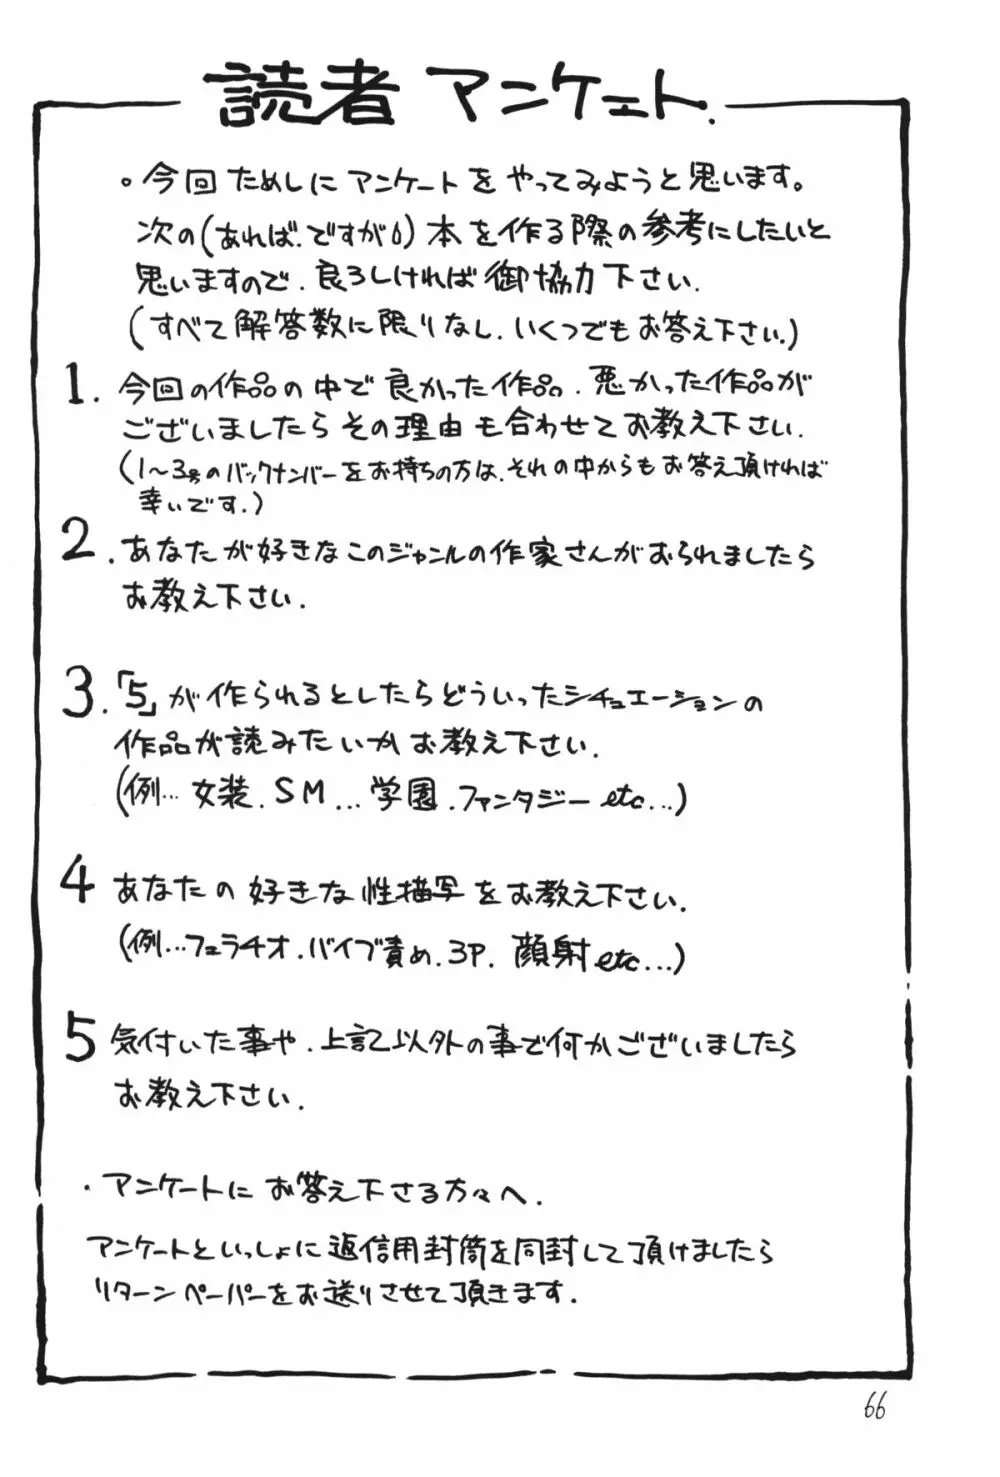 読者アンケェト.
。今回ためしにアンケートをやってみようと思います。
次の(あれば.ですが6)本を作る際の参考にしたいと
思いますので.良ろしければ御協力下さい.
(すべて解答数に限りなし.いくつでもお答え下さい.)
1.今回の作品の中で良かった作品.悪かった作品が
ございましたらその理由も合わせてお教え下さい.
(1〜3号のバックナンバーをお持ちの方は.それの中からもお答え頂ければ
幸いです.)
2.あなたが好きなこのジャンルの作家さんがおられましたら
お教え下さい.
3.「5」が作られるとしたらどういったシチュエーションの
作品が読みたいかお教え下さい.
(例…女装.SM…学園.ファンタジーetc…)
4 あなたの好きな性描写をお教え下さい.
(例…フェラチオ.バイブ責め.3P.顔射etc…)
5 気付いた事や.上記以外の事で何かございましたら
お教え下さい.
・アンケートにお答え下さる方々へ.
アンケートといっしょに返信用封筒を同封して頂けましたら
リターンペーパーをお送りさせて頂きます.
66